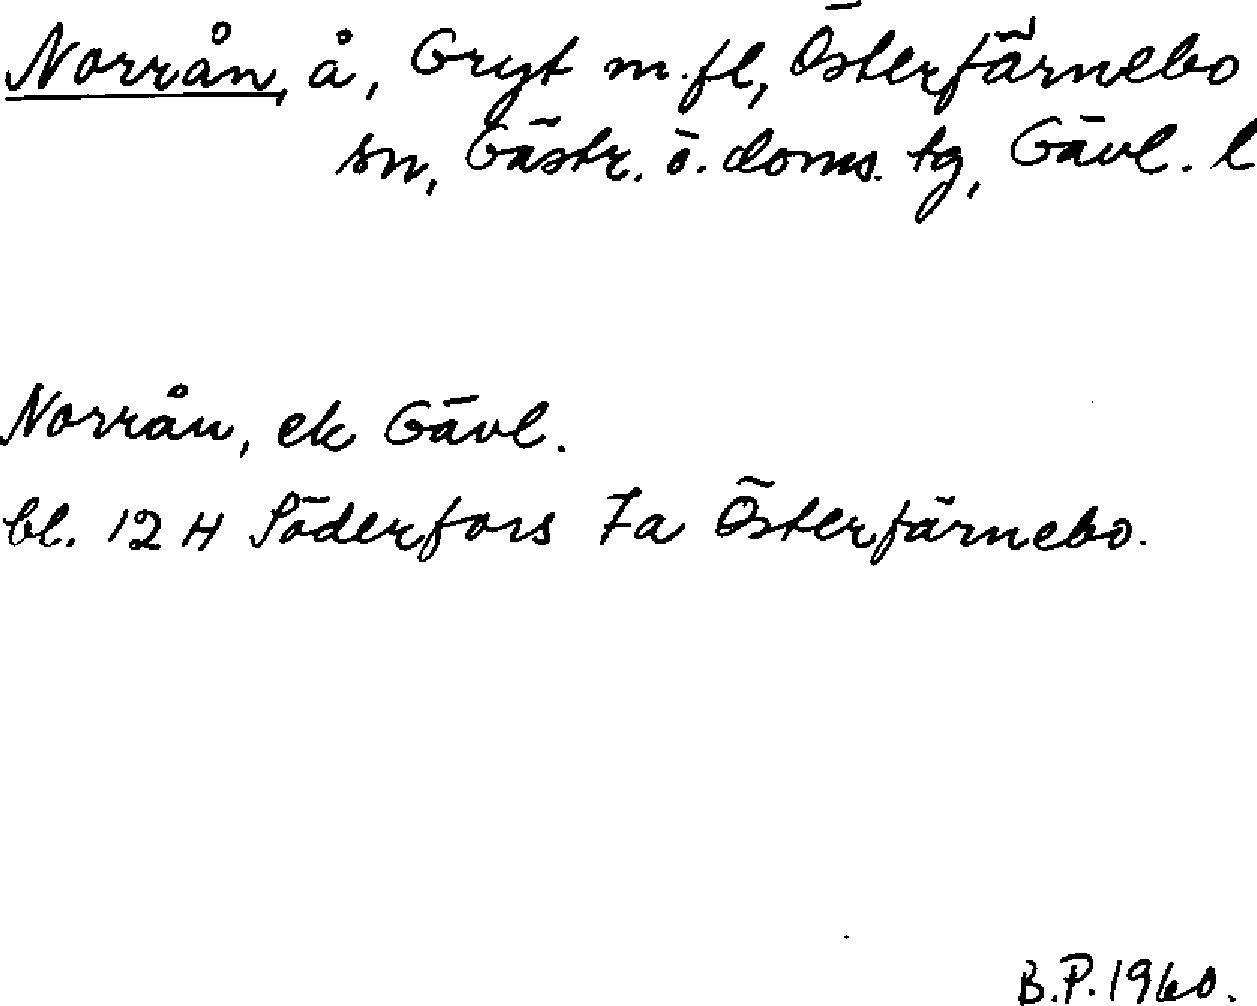 Norrån, å, Gryt m.fl, Österfärnebo
sn, Gästr. ö. doms. tg, Gävl. l
Norrån, ek Gävl.
bl. 12 H Söderfors 7a Österfärnebo.
B.P. 1960.